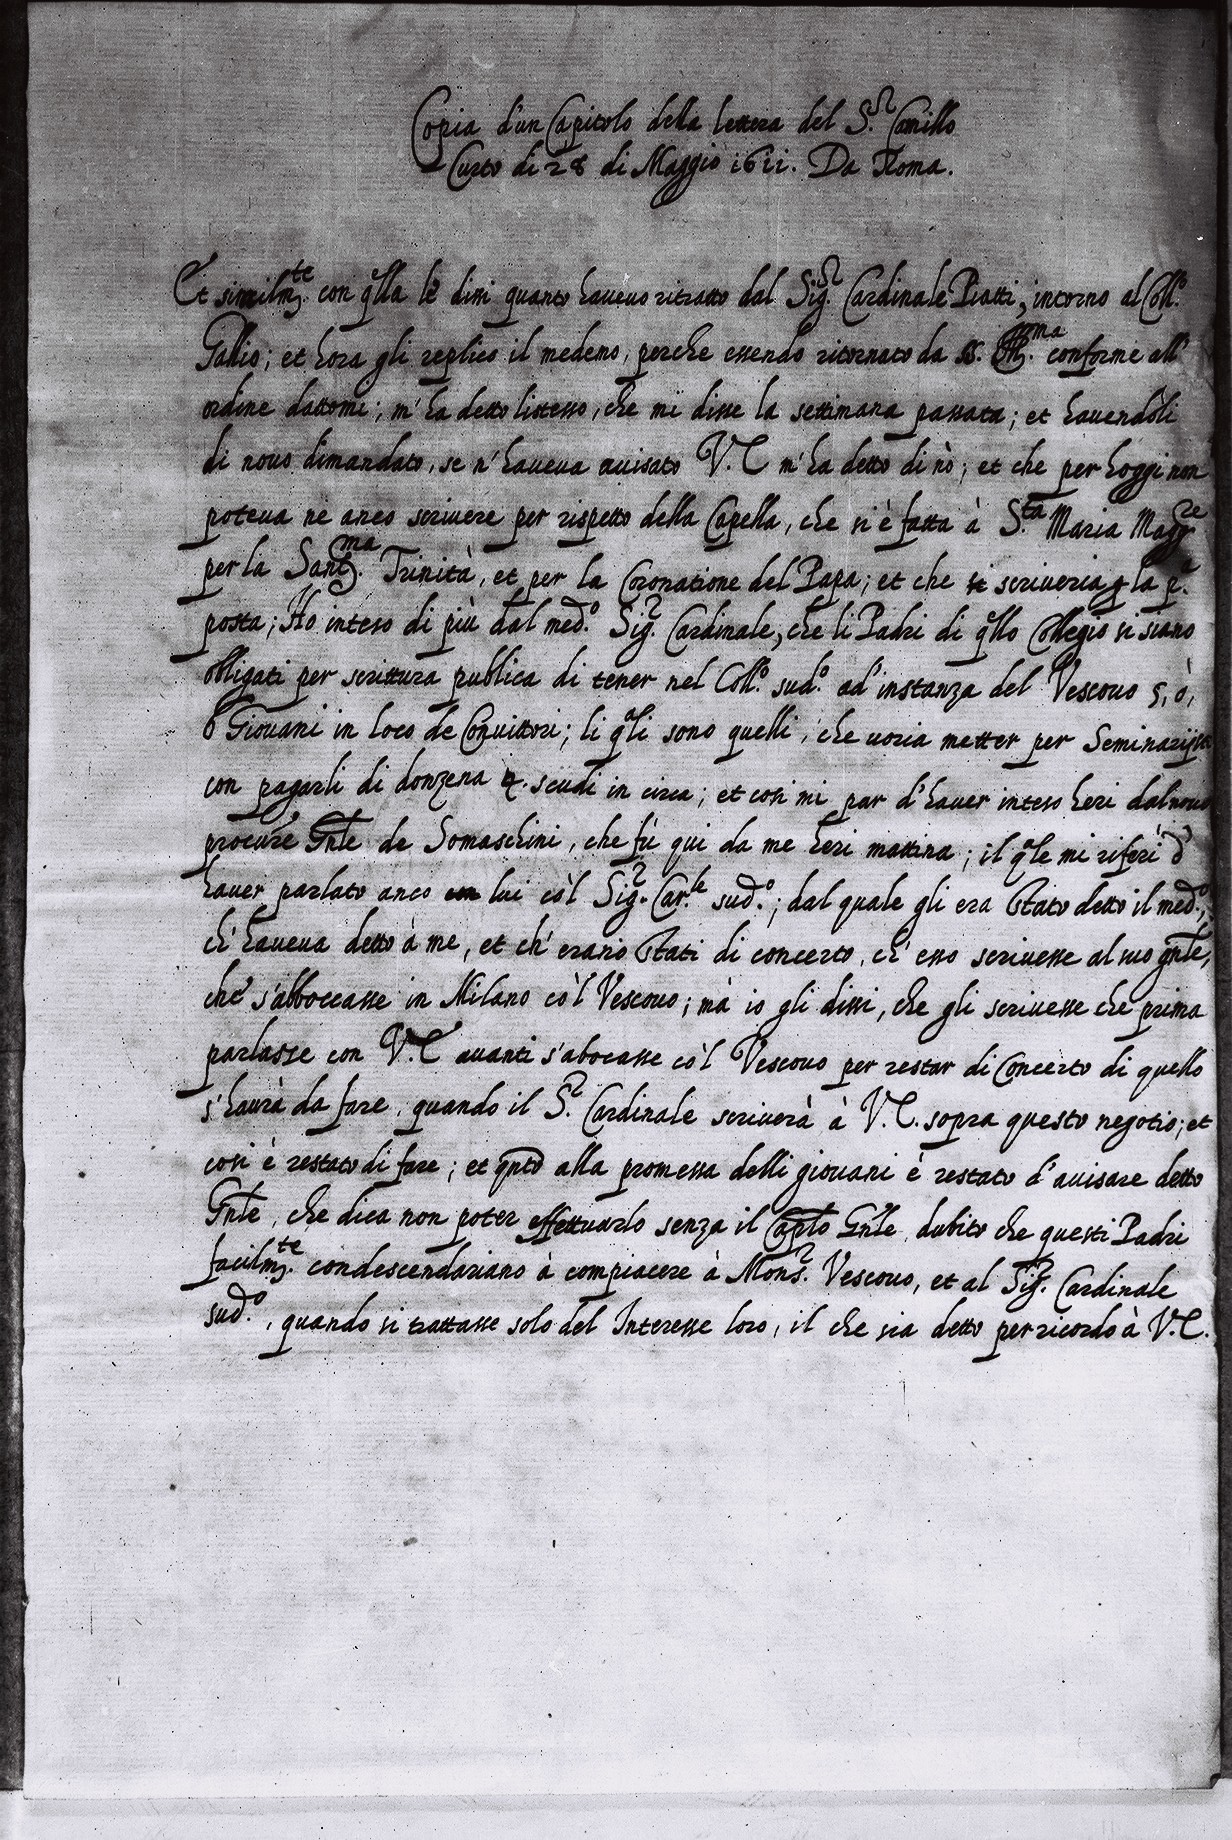 Copia d'un Capitolo della lettera del S.r Camillo
Curto di 28 di Maggio 1611. Da Roma.
Et similm.te con q͞lla le dissi quanto havevo ritratto dal Sig.r Cardinale Piatti, intorno al Coll.o
Gallio; et hora gli replico il medemo, perche essendo ritornato da SS. Ill.ma conforme all'
ordine dattomi; m'ha detto listesso, che mi disse la settimana passata; et havendoli
di novo dimandato, se n'haveva avisato V.C m'ha detto di nò; et che per hoggi non
poteva ne anco scrivere per rispetto della Capella, che si è fatta à S.ta Maria Magg.re
per la Sant.ma Trinità, et per la Coronatione del Papa; et che scriveria p la p.a
posta; Ho inteso di più dal med.o Sig.r Cardinale, che li Padri di q͞llo Collegio si siano
obligati per scrittura publica di tener nel Coll.o sud.o ad instanza del Vescovo 5, ò,
6 Giovani in loco de Convittori; li q͞li sono quelli, che voria metter per Seminaristi
con pagarli di donzena scudi in circa; et cosi mi par d'haver inteso heri dal novo
procur͞e Gn͞le de Somaschini, che fù qui da me heri mattina; il q͞le mi riferì d'
haver parlato anco lui cò'l Sig.r Car.le sud.o; dal quale gli era stato detto il med.o,
ch'haveva detto à me, et ch'erano stati di concerto, ch'esso scrivesse al suo gn͞le,
che s'abboccasse in Milano cò'l Vescovo; mà io gli dissi, che gli scrivesse che prima
parlasse con V.C avanti s'abocasse cò'l Vescovo per restar di Concerto di quello
s'havrà da fare, quando il S.r Cardinale scriverà à V.C. sopra questo negotio; et
cosi è restato di fare; et qn͞to alla promessa delli giovani è restato d'avisare detto
Gn͞le, che dica non poter effettuarlo senza il Cap͞lo Gn͞le, dubito che questi Padri
facilm.te condescendariano à compiacere à Mons.r Vescovo, et al Sig.r Cardinale
sud.o, quando si trattasse solo del Interesse loro, il che sia detto per ricordo à V.C.